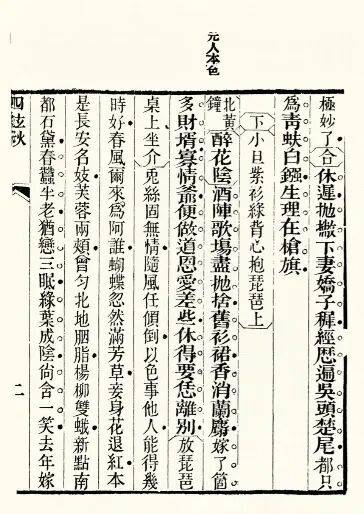 元人本色
極妙了合休遲抛撇下妻嬌子穉經歷遍吳頭楚尾都只
爲靑蚨白鏹生理在槍旗
下小旦紫衫綠背心抱琵琶上
北黃鐘醉花陰酒陣歌場盡抛捨舊衫裙香消蘭麝嫁了箇
多財壻寡情爺便做道恩愛差些休得要恁離別放琵琶
桌上坐介兎絲固無情隨風任傾倒以色事他人能得幾
時好春風爾來爲阿誰蝴蝶忽然滿芳草妾身花退紅本
是長安名妓芙蓉兩頰曾勻北地胭脂楊柳雙蛾新點南
都石黛春蠶半老猶戀三眠綠葉成陰尙含一笑去年嫁
四絃秋
二